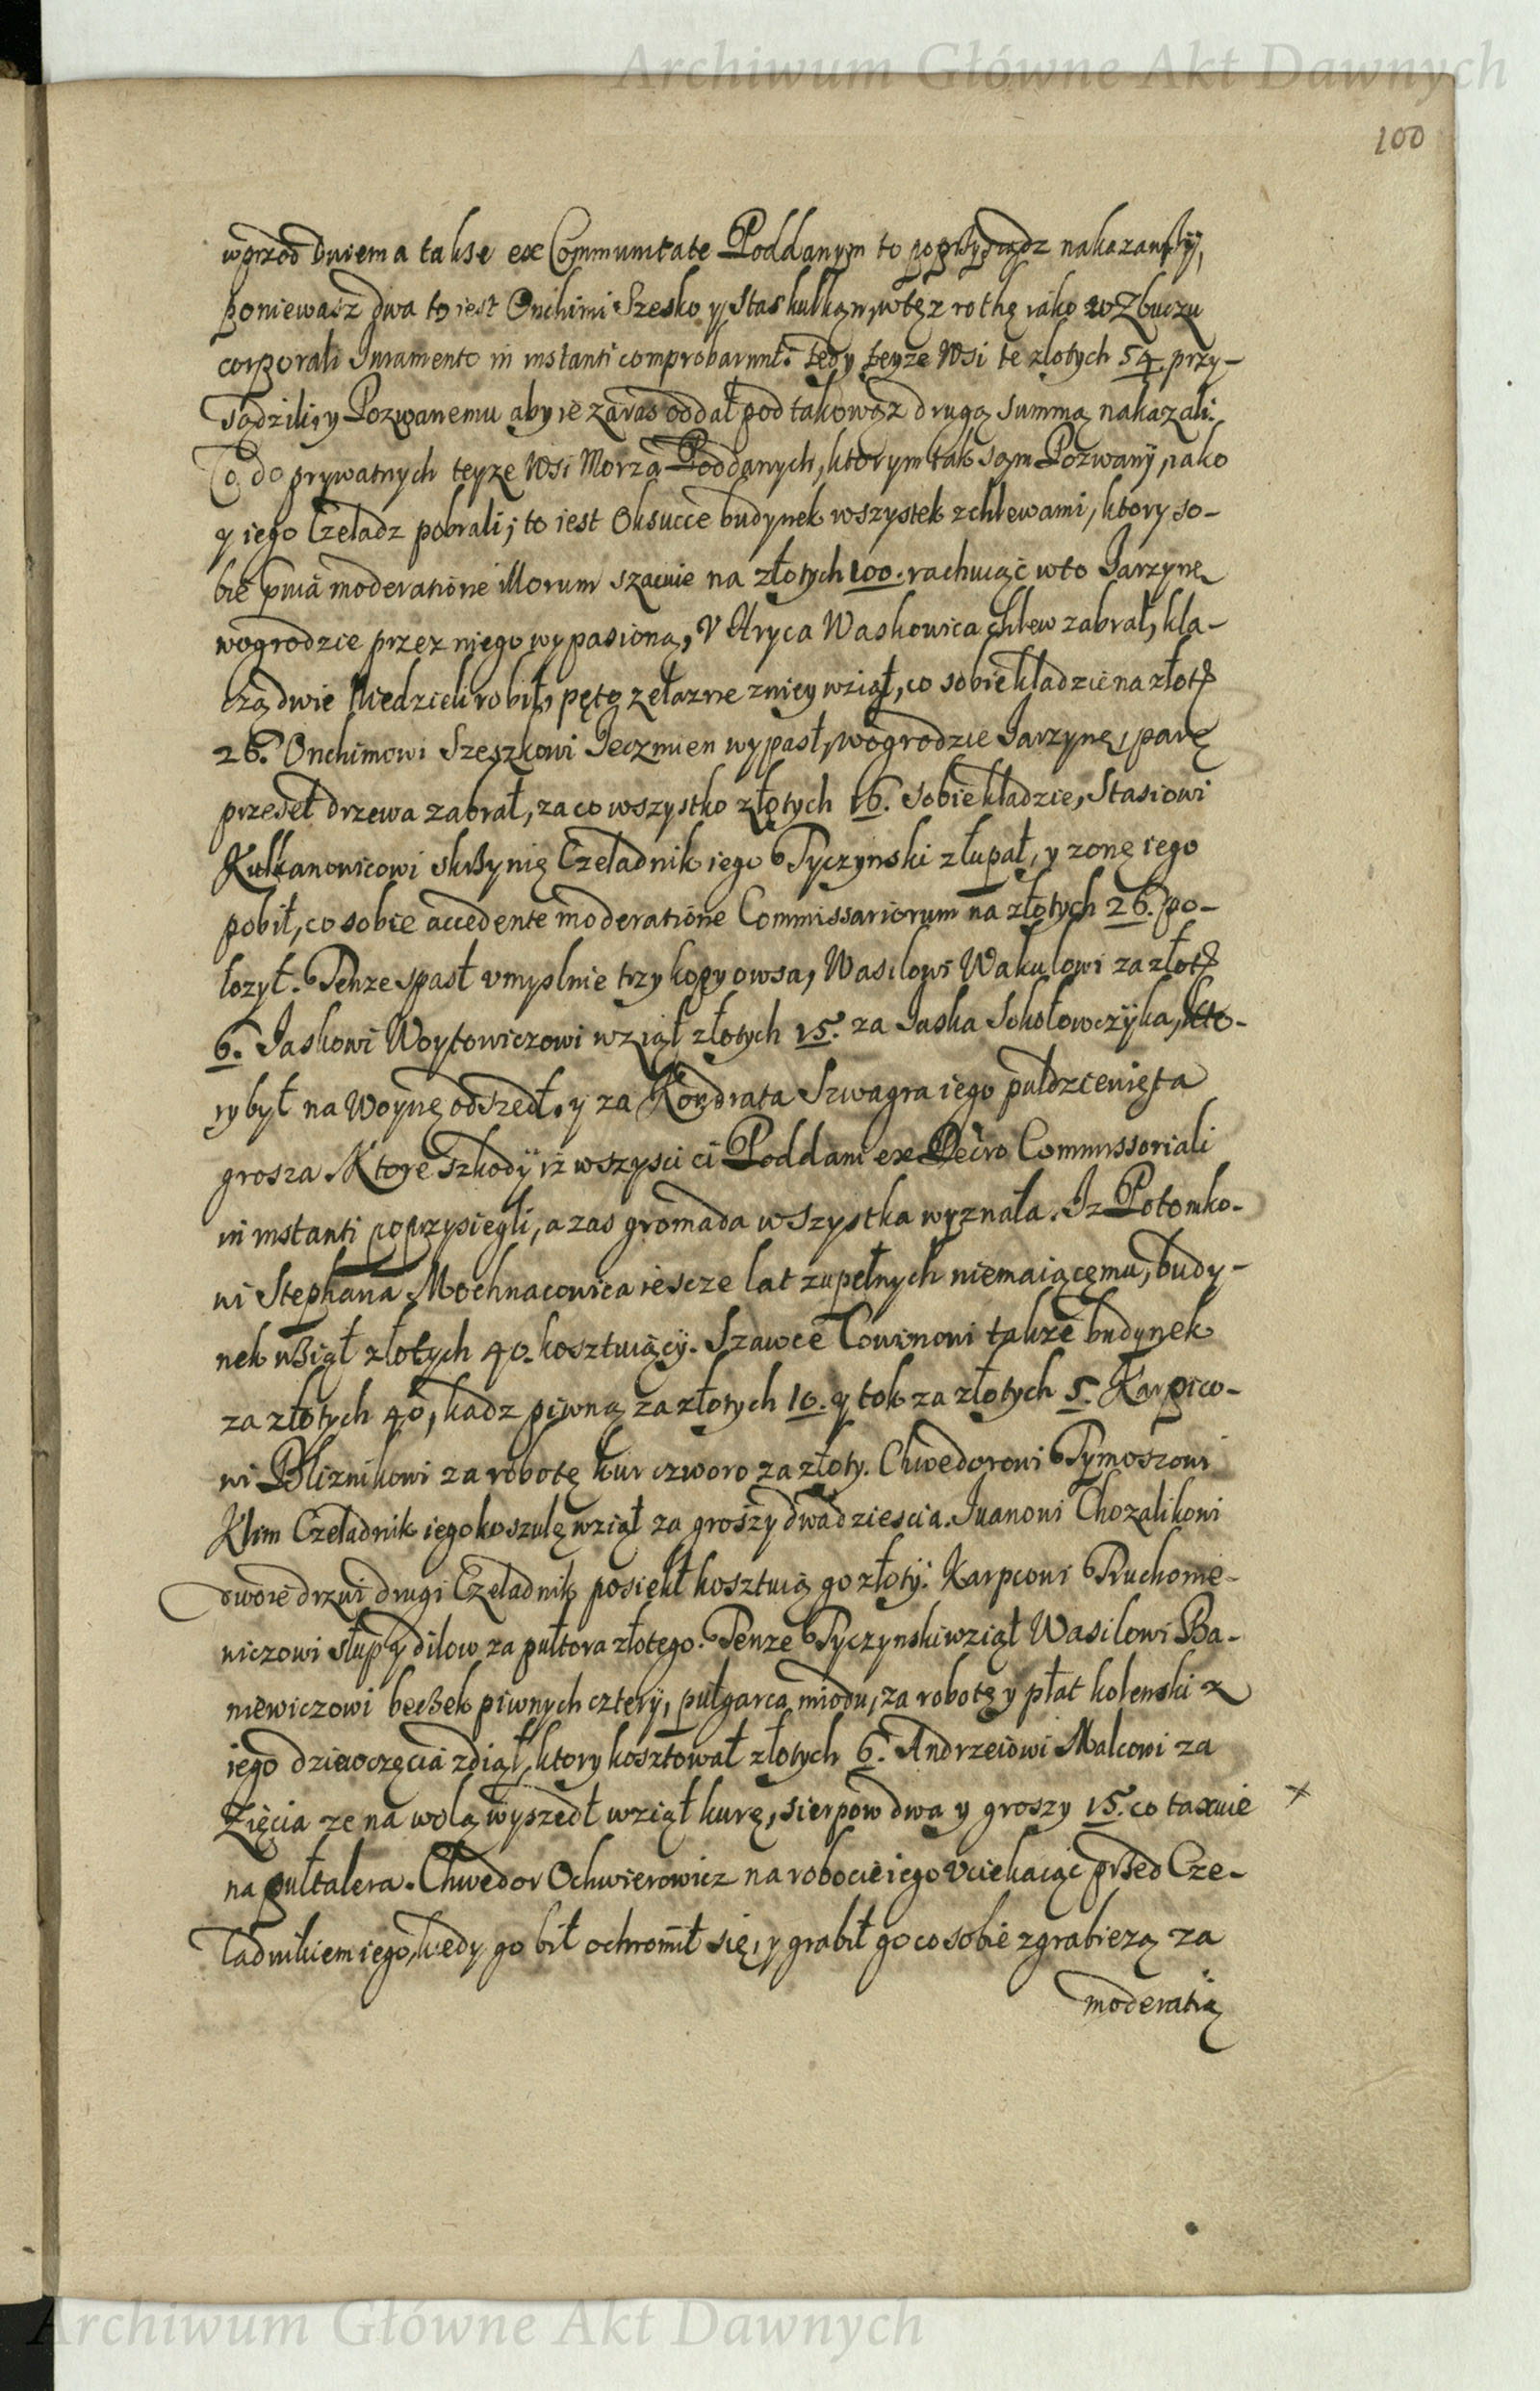 Archiwum Główne Akt Dawnych
100
wprzod dwiema takse ex Communitate Poddanym to poprzysiądz nakazawszÿ,
poniewasz dwa to iest Onchimi Szesko y Stas kulkan, w tęz rothę iako w Zbuczu
corporali Iuramento in instanti comprobarunt. tedy teyze Wsi te złotych 54 przy-
sądzili, y Pozwanemu aby ie zaras oddał pod takowąz drugą summą nakazali.
Co do prywatnych teyze Wsi Morza Poddanych, ktorym tak sam Pozwanÿ, iako
y iego Czeladz pobrali; to iest Oksucce budynek wszystek z chlewami, ktory so-
bie moderatione illorum szacuie na złotych 100. rachuiąc w to Iarzynę
w ogrodzie przez niego wypasioną, V Hryca Waskowica chlew zabrał, kla-
czą dwie Niedzieli robił, pęto zelazne z niey wziął, co sobie kładzie na złot
26. Onchimowi Szeszkowi Ieczmien wypasł, w ogrodzie Iarzynę, parę
przeseł drzewa zabrał, za co wszystko złotych 16. sobie kładzie, Stasiowi
Kulkanowicowi skrzynię Czeladnik iego Tyczynski złupał, y zonę iego
pobił, co sobie accedente moderatione Commissariorum na złotych 26. po-
łozył. Tenze spasł vmyslnie trzy kopy owsa, Wasilowi Wakulowi za złot
6. Iaskowi Woytowiczowi wziął złotych 15. za Iaska Sokołowczÿka, kto-
ry był na Woynę odszedł. y za Kondrata Szwagra iego pułdziewięta
grosza. Ktore szkodÿ iz wszysci ci Poddani ex Decro Commissoriali
in instanti poprzysiegli, a zas gromada wszystka wyznała. Iz Potomko-
wi Stephana Mochnacowica iescze lat zupełnych niemaiącemu, budy-
nek wziął złotych 40. kosztuiącÿ. Szawce Cowimowi takze budynek
za złotych 40, kadz piwną za złotych 10. y tok za złotych 5. Karpico-
wi Bliznikowi za robotę kur czworo za złoty. Chwedorowi Tymoszowi
Klim Czeladnik iego koszulę wziął za groszy dwadziescia. Iwanowi Chozalikowi
dwoie drzwi drugi Czeladnik posiekł kosztuią go złotÿ. Karpcowi Ruchome-
wiczowi słup y dilow za pułtora złotego. Tenze Tyczynski wziął Wasilowi Ba-
niewiczowi beczek piwnych czterÿ, pułgarca miodu, za robotę y płat kolenski z
iego dziewczęcia zdiął, ktory kosztował złotych 6. Andrzeiowi Malcowi za
Zięcia ze na wolą wyszedł wziął kurę, sierpow dwa y groszy 15. co taxuie ×
na pułtalera. Chwedor Ochwierowicz na robocie iego vciekaiąc przed Cze-
ladnikiem iego, kiedy go bił ochromił się, y grabił go co sobie z grabiezą za
moderatią
Archiwum Główne Akt Dawnych